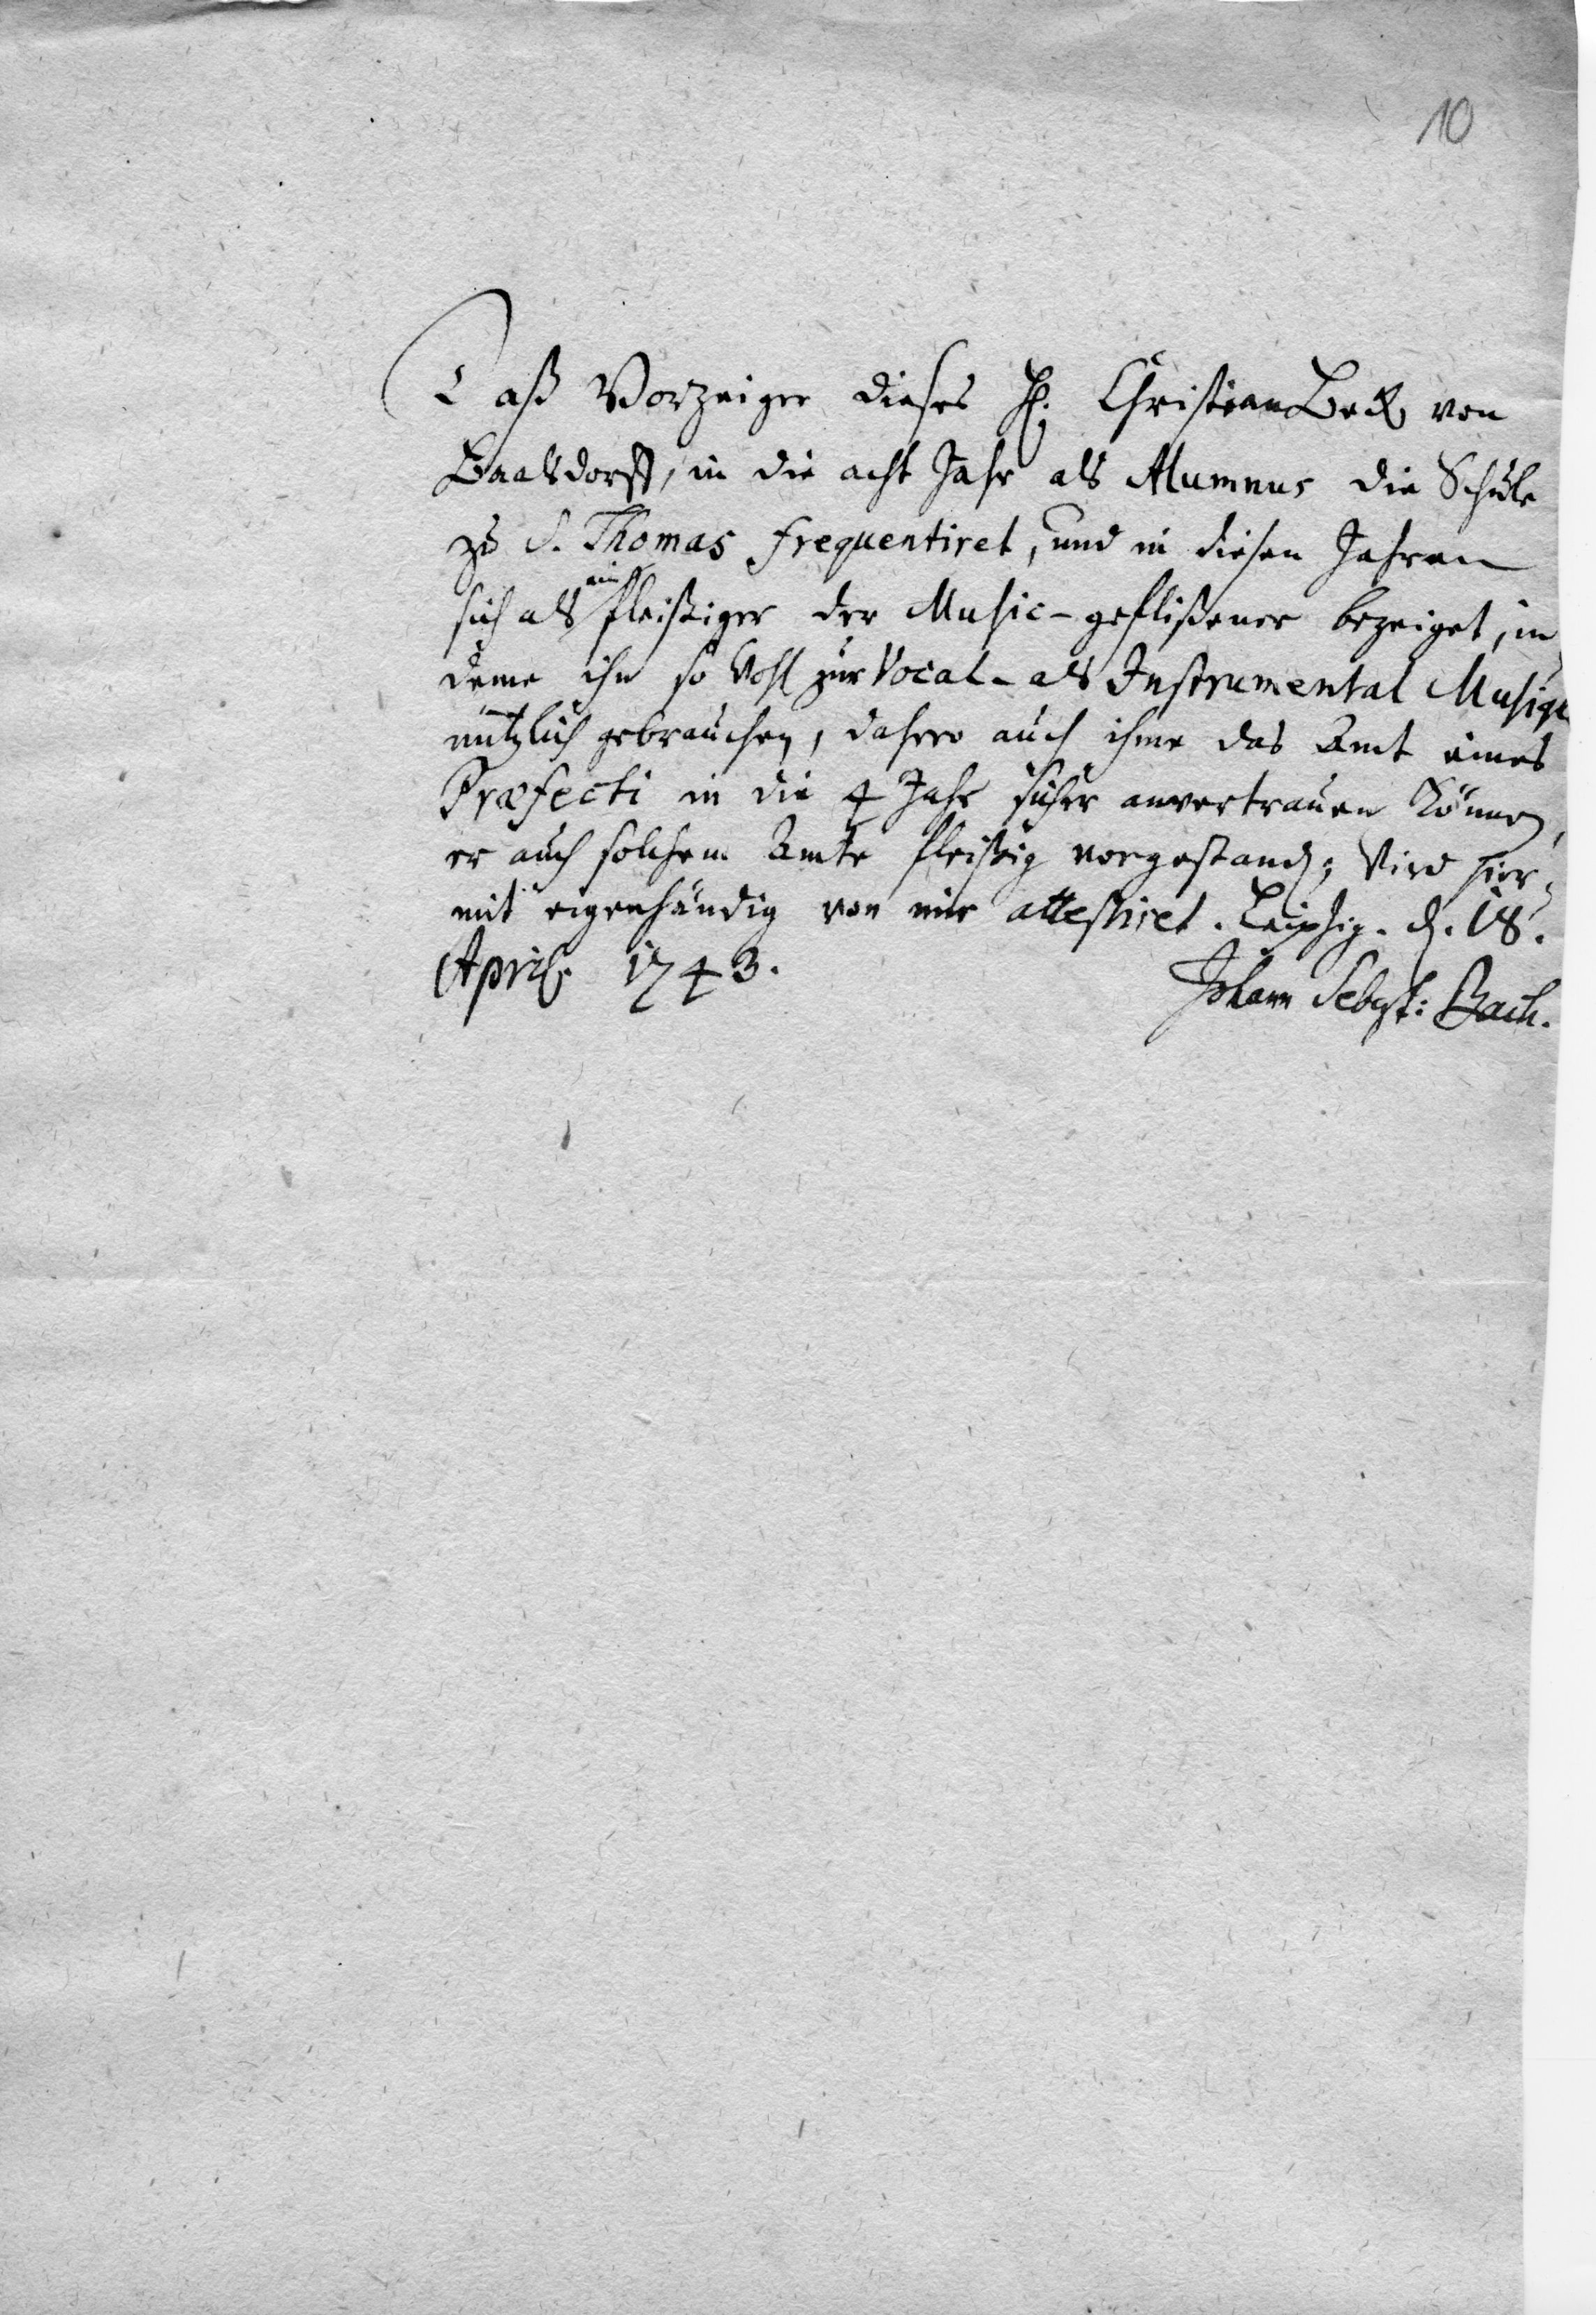 10
Daß Vorzeiger dieses H. Christian Beck von
Baalsdorff, in die acht Jahr als Alumnus die Schule
zu S. Thomas frequentiret, und in diesen Jahren
sich als ein fleißiger der Music-geflißener bezeiget, in
deme ihn so wohl zur Vocal- als Instrumental Musique
nützlich gebrauchen, dahero auch ihme das Amt eines
Præfecti in die 4 Jahr sicher anvertrauen können,
er auch solchem Amte fleißig vorgestanden; wird hier-
mit eigenhändig von mir attestiret. Leipzig. d. 18.
April. 1743.
Johann Sebast: Bach.